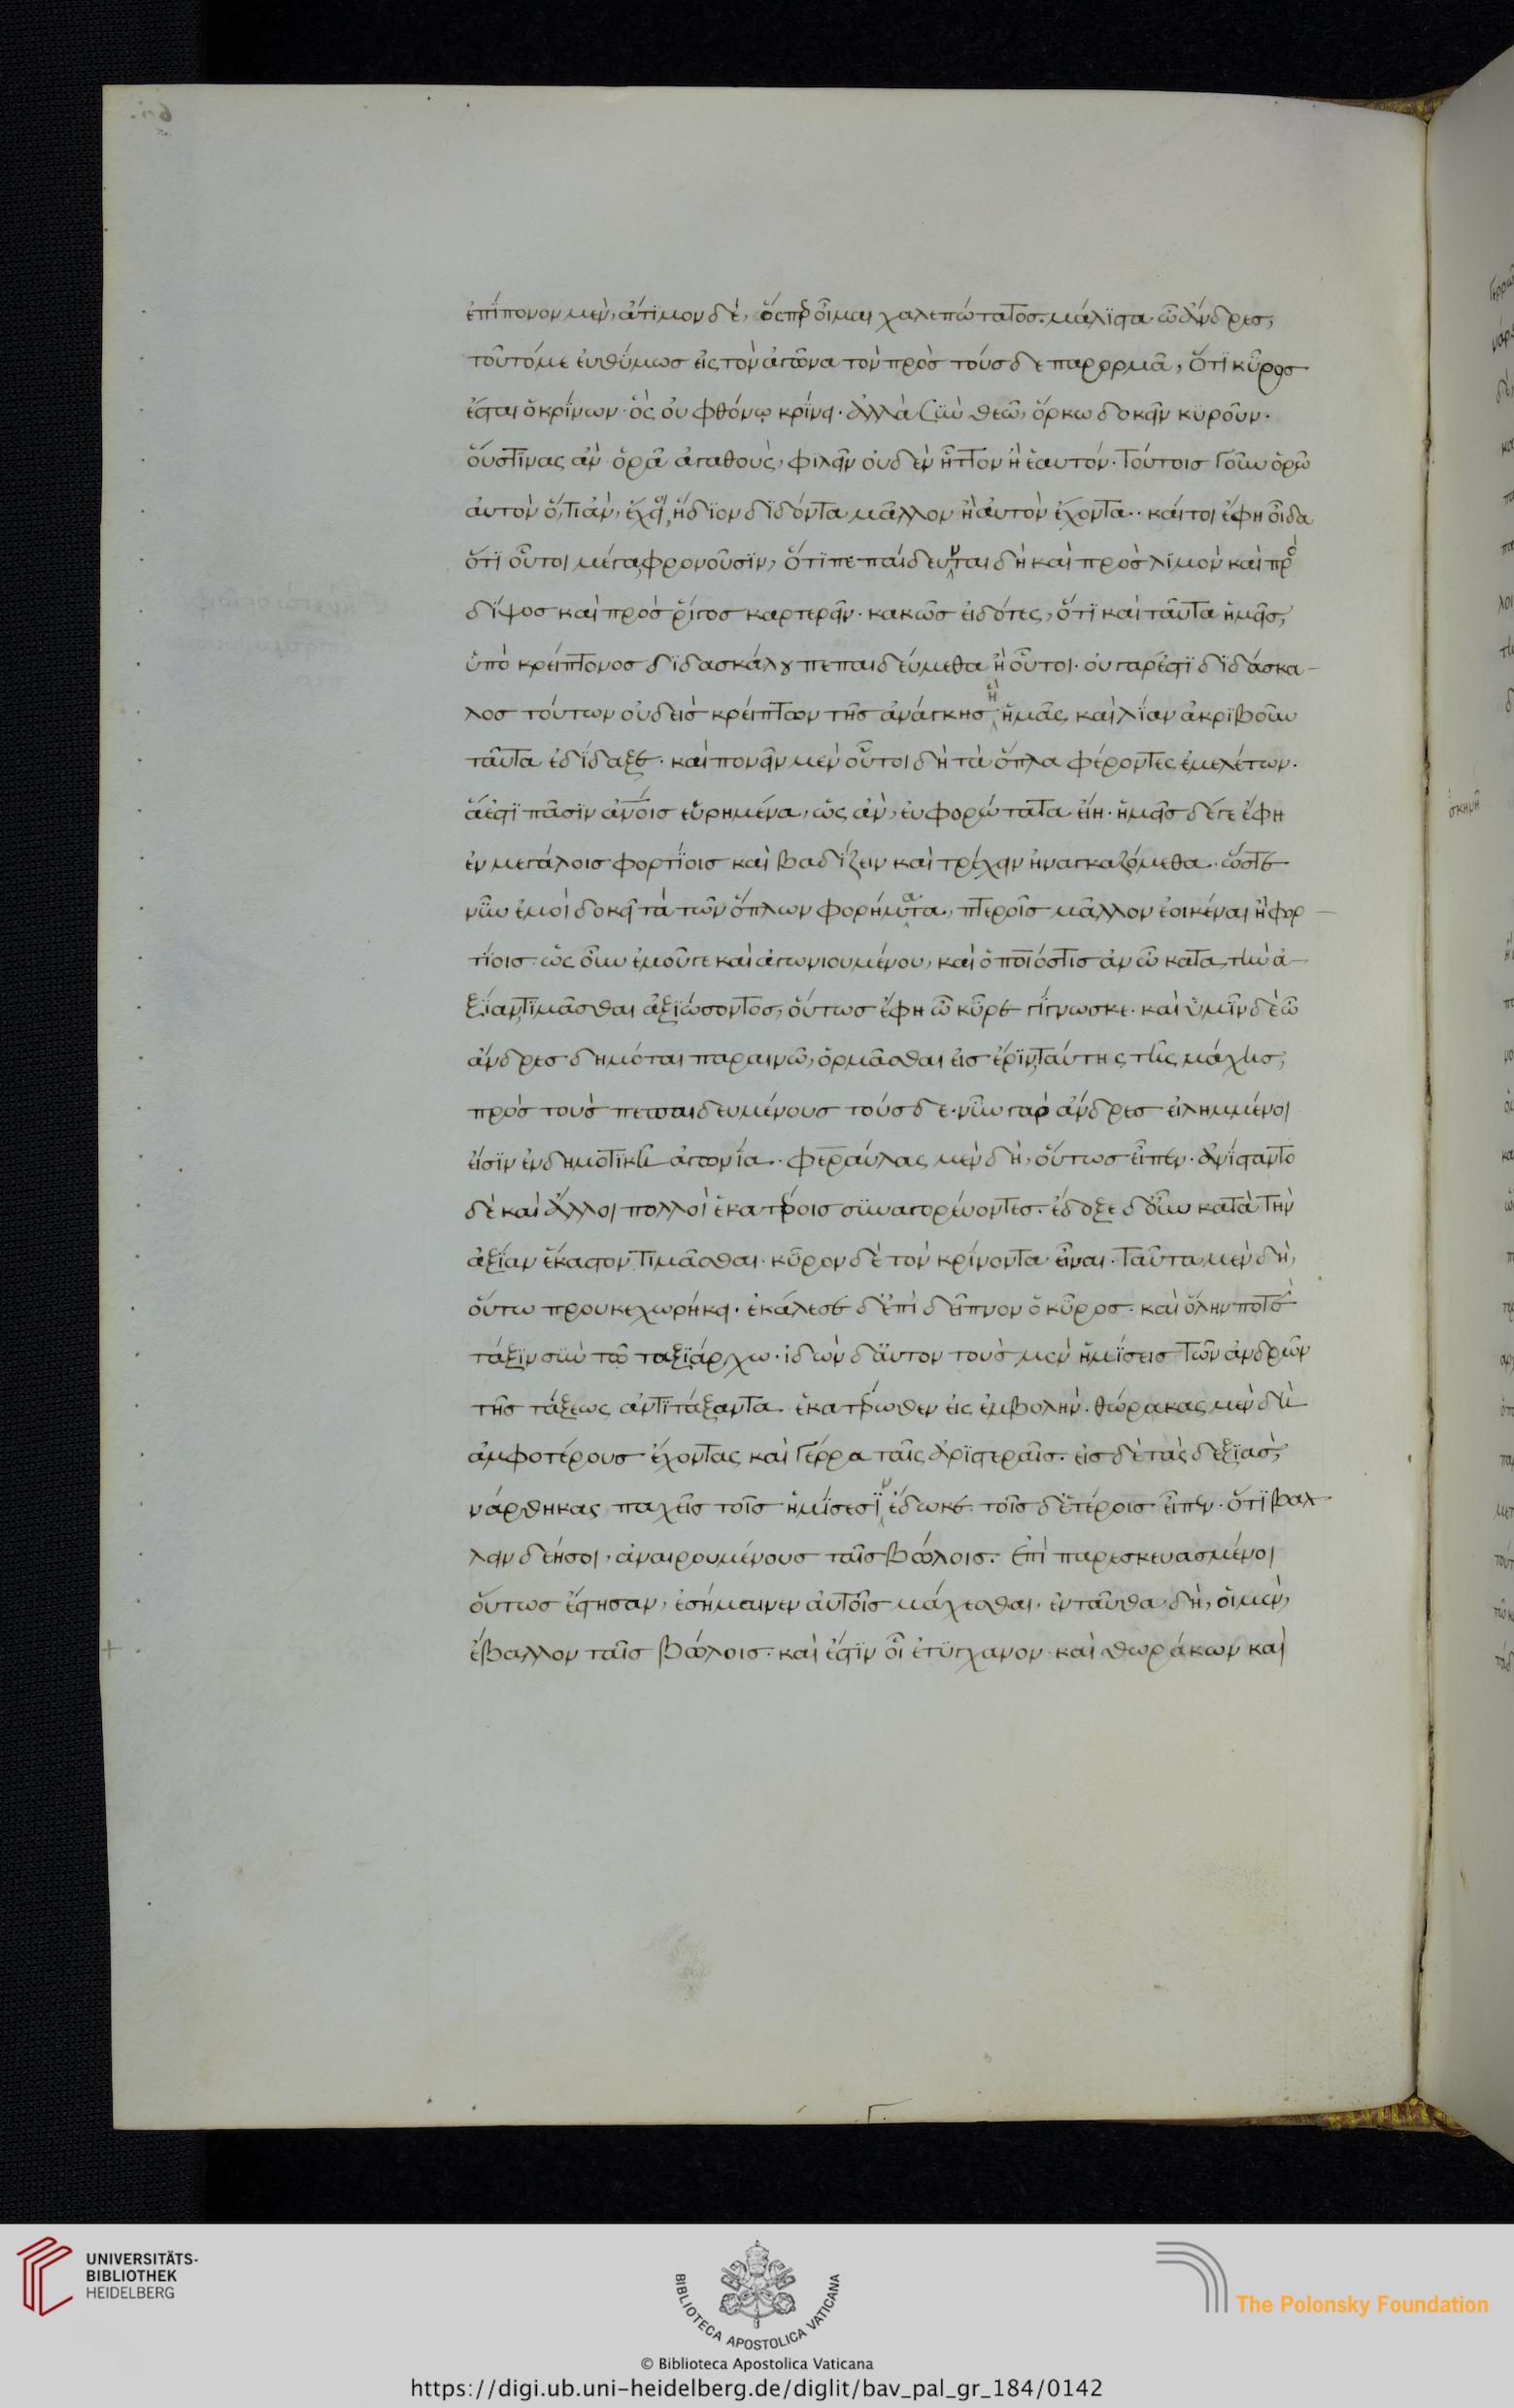 ἐπίπονον μὲν, ἄτιμον δὲ, ὅσπερ οἶμαι χαλεπώτατος. μάλιστα ὦ ἄνδρες,
τοῦτό με εὐθύμως εἰς τὸν ἀγῶνα τὸν πρὸς τούσδε παρορμᾶ, ὅτι κῦρος
ἔσται ὁ κρίνων· ὃς οὐ φθόνῳ κρίνει. ἀλλὰ σὺν θεῶ, ὅρκω δοκεῖν κυροῦν.
οὕστινας ἂν ὁρᾶ ἀγαθοὺς, φιλεῖν οὐδὲν ἧττον ἢ ἑαυτόν. τούτοις γοῦν ὁρῶ
αὐτὸν ὅ,τι ἂν, ἔχει, ἥδιον διδόντα μᾶλλον ἢ αὐτὸν ἔχοντα. καίτοι ἔφη οἶδα
ὅτι οὗτοι μέγα φρονοῦσιν, ὅτι πεπαίδευνται δὴ καὶ πρὸς λιμὸν καὶ πρὸς
δίψος καὶ πρὸς ῥίγος καρτερεῖν. κακῶς εἰδότες, ὅτι καὶ ταῦτα ἡμεῖς,
ὑπὸ κρείττονος διδασκάλου πεπαιδεύμεθα ἢ οὗτοι. οὐ γάρ ἐστι διδάσκα-
λος τούτων οὐδεὶς κρείττων τῆς ἀνάγκης ἣ ἡμᾶς καὶ λίαν ἀκριβοῦν
ταῦτα ἐδίδαξε. καὶ πονεῖν μὲν οὗτοι δὴ τὰ ὅπλα φέροντες ἐμελέτων.
ἅ ἐστι πᾶσιν ἀνοις εὑρημένα, ὡς ἂν, εὐφορώτατα εἴη. ἡμεῖς δέ γε ἔφη
ἐν μεγάλοις φορτίοις καὶ βαδίζειν καὶ τρέχειν ἠναγκαζόμεθα. ὥστε
νῦν ἐμοὶ δοκεῖ τὰ τῶν ὅπλων φορήματα, πτεροῖς μᾶλλον ἐοικέναι ἢ φορ-
τίοις. ὡς οὖν ἐμοῦ γε καὶ ἀγωνιουμένου, καὶ ὁποῖός τις ἂν ὦ κατα τὴν ἀ-
ξίαν τιμᾶσθαι ἀξιώσοντος, οὕτως ἔφη ὦ κῦρε γίγνωσκε. καὶ ὑμῖν δὲ ὦ
ἄνδρες δημόται παραινῶ, ὁρμᾶσθαι εἰς ἔριν ταύτης τῆς μάχης,
πρὸς τοὺς πεπαιδευμένους τούσδε. νῦν γαρ ἄνδρες εἰλημμένοι
εἰσὶν ἐν δημοτικῆ ἀγωνία. φεραύλας μὲν δὴ, οὕτως εἶπεν. ἀνίσταντο
δὲ καὶ ἄλλοι πολλοὶ ἑκατέροις συναγορεύοντες. ἔδοξε δ' οὖν κατὰ τὴν
ἀξίαν ἕκαστον τιμᾶσθαι. κῦρον δὲ τὸν κρίνοντα εἶναι. ταῦτα μὲν δὴ,
οὕτω προυκεχωρήκει. ἐκάλεσε δ' ἐπὶ δεῖπνον ὁ κῦρος. καὶ ὅλην ποτὲ
τάξιν σὺν τῶ ταξιάρχω. ἰδὼν δ' αὐτὸν τοὺς μὲν ἡμίσεις τῶν ἀνδρῶν
τῆς τάξεως ἀντιτάξαντα ἑκατέρωθεν εἰς ἐμβολήν. θώρακας μὲν δὴ
ἀμφοτέρους ἔχοντας καὶ γέρρα ταῖς ἀριστεραῖς. εἰς δὲ τὰς δεξιὰς,
νάρθηκας παχεῖς τοῖς ἡμίσεσιν ἔδωκε. τοῖς δ' ἑτέροις εἶπεν. ὅτι βαλ
λειν δεήσοι, ἀναιρουμένους ταῖς βώλοις. ἐπεὶ παρεσκευασμένοι
οὕτως ἔστησαν, ἐσήμαινεν αὐτοῖς μάχεσθαι. ἐνταῦθα δὴ, οἱ μὲν,
ἔβαλλον ταῖς βώλοις. καὶ ἔστιν οἳ ἐτύγχανον καὶ θωράκων καὶ
UNIVERSITÄTS-
BIBLIOTHEK
HEIDELBERG
BIBLIOTECA APOSTOLICA VATICANA
The Polonsky Foundation
© Biblioteca Apostolica Vaticana
https://digi.ub.uni-heidelberg.de/diglit/bav_pal_gr_184/0142